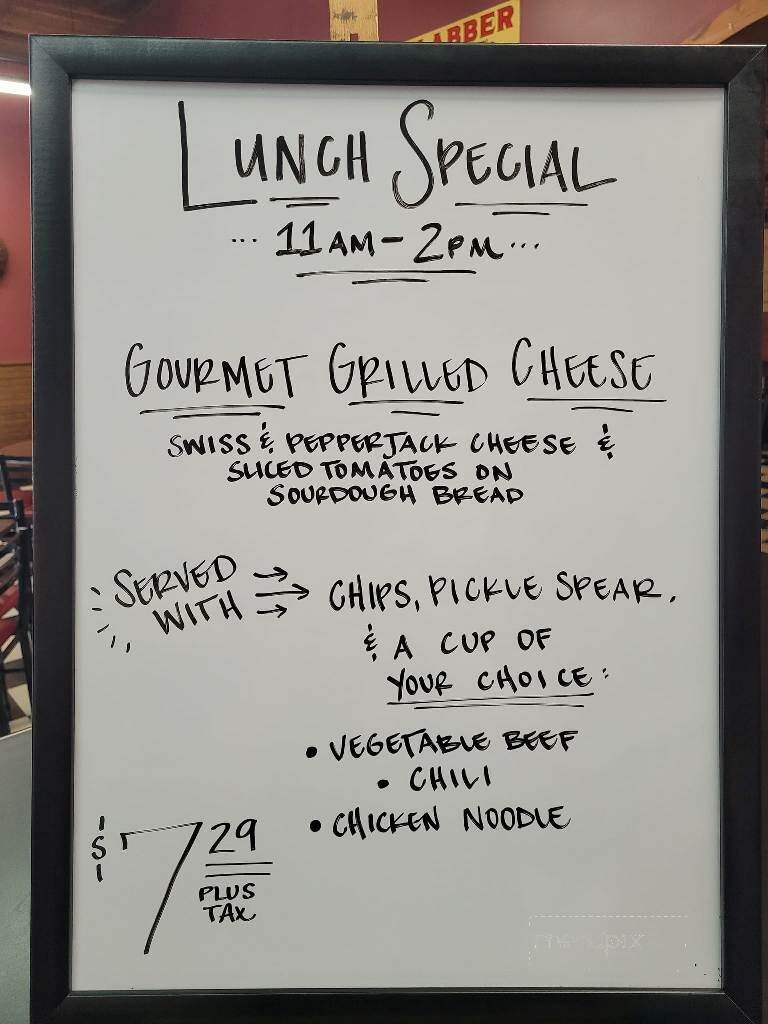 ABBER
LUNCH SPECIAL
... 11AM - 2PM ...
GOURMET GRILLED CHEESE
SWISS & PEPPERJACK CHEESE &
SLICED TOMATOES ON
SOURDOUGH BREAD
SERVED
WITH
CHIPS, PICKLE SPEAR,
& A CUP OF
YOUR CHOICE:
• VEGETABLE BEEF
• CHILI
• CHICKEN NOODLE
$7 29
PLUS
TAX